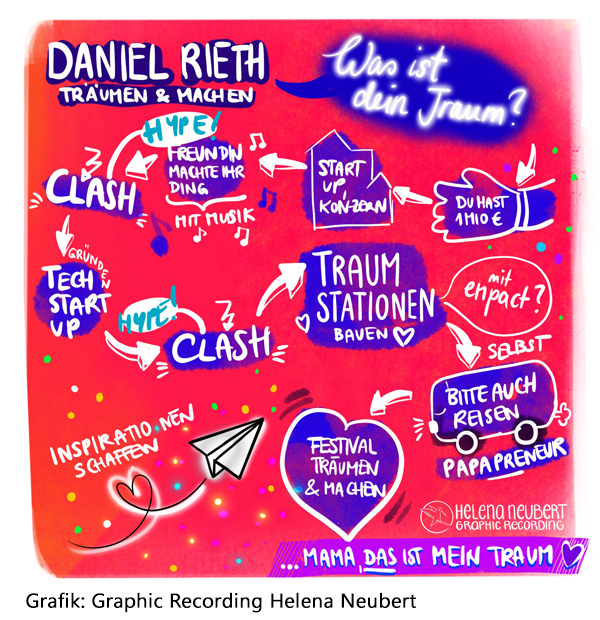 DANIEL RIETH
TRÄUMEN & MACHEN
Was ist
dein Traum?
DU HAST
1 MIO €
START
UP,
KONZERN
HYPE!
FREUNDIN
MACHTE IHR
DING
MIT MUSIK
CLASH
GRÜNDEN
TECH
START
UP
HYPE!
CLASH
TRAUM
STATIONEN
BAUEN
mit
enpact?
SELBST
BITTE AUCH
REISEN
PAPAPRENEUR
FESTIVAL
TRÄUMEN
& MACHEN
INSPIRATIONEN
SCHAFFEN
HELENA NEUBERT
GRAPHIC RECORDING
...MAMA, DAS IST MEIN TRAUM
Grafik: Graphic Recording Helena Neubert